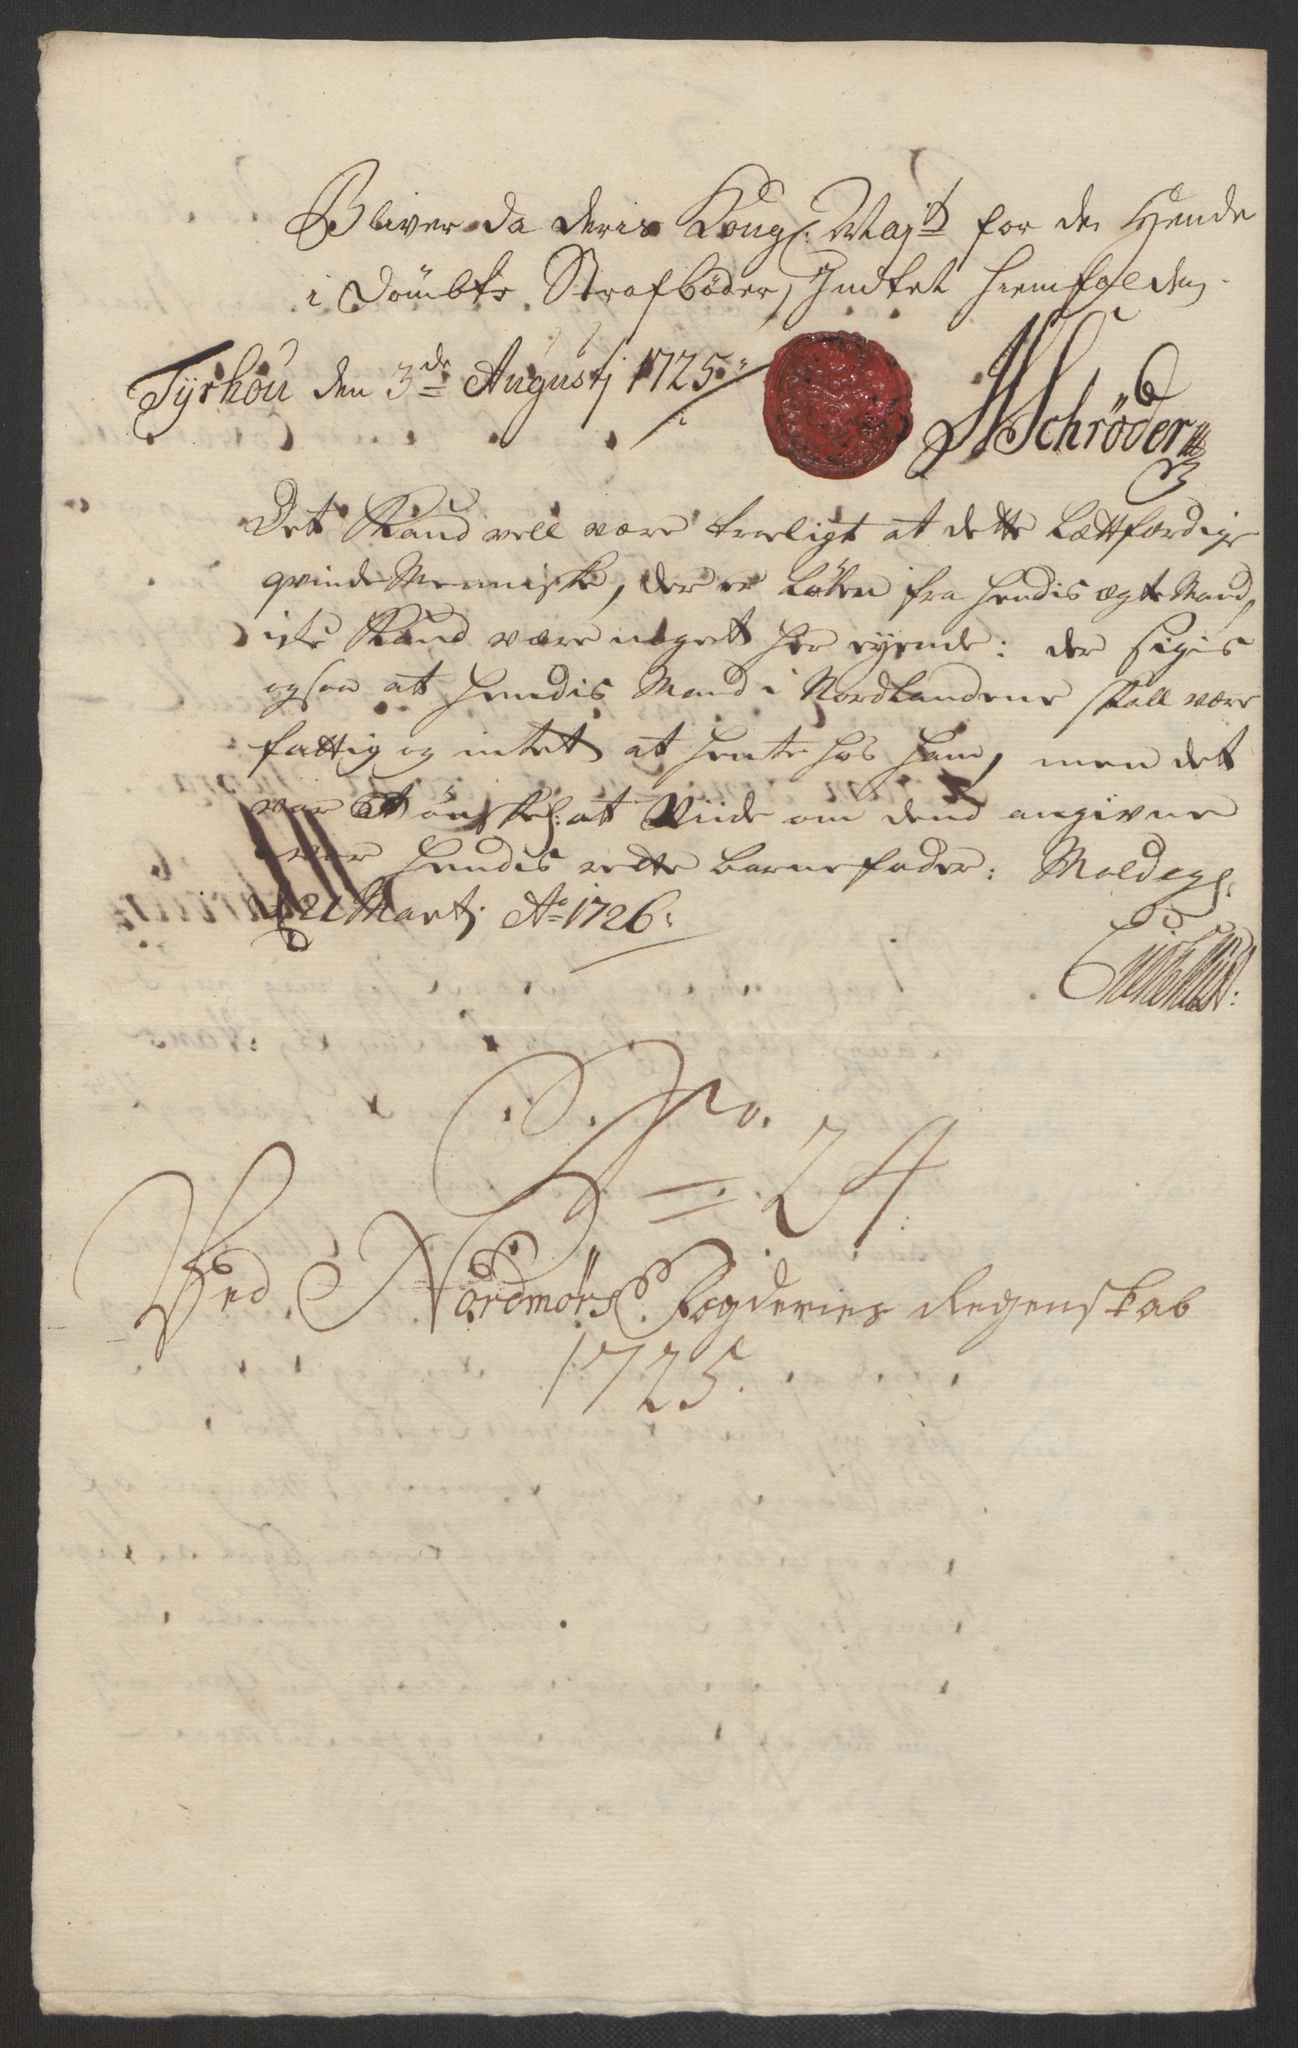 Bliver da deris Kongl: Maj:ts for de Hende
i dømbte Strafbøder, Indtet hiemfalden.
Tyrhou den 3de Augustj 1725
HSchrøder
Det Kand vell være troeligt at dette Lættfærdige
qvinde Menniske, der er løben fra hendis ægte Mand,
icke Kand være noget her eyende: der sigis
ogsaa at hendis Mand i Nordlandene skall være
fattig og intet at hente hos ham, men det
var at ønskel: at Viide om dend angivne
var hendis rette barnefader: Moldegl.
21 Martj Ao 1726.
No. 24
Ved Nordmørs Fogderies Regenskab
1725.